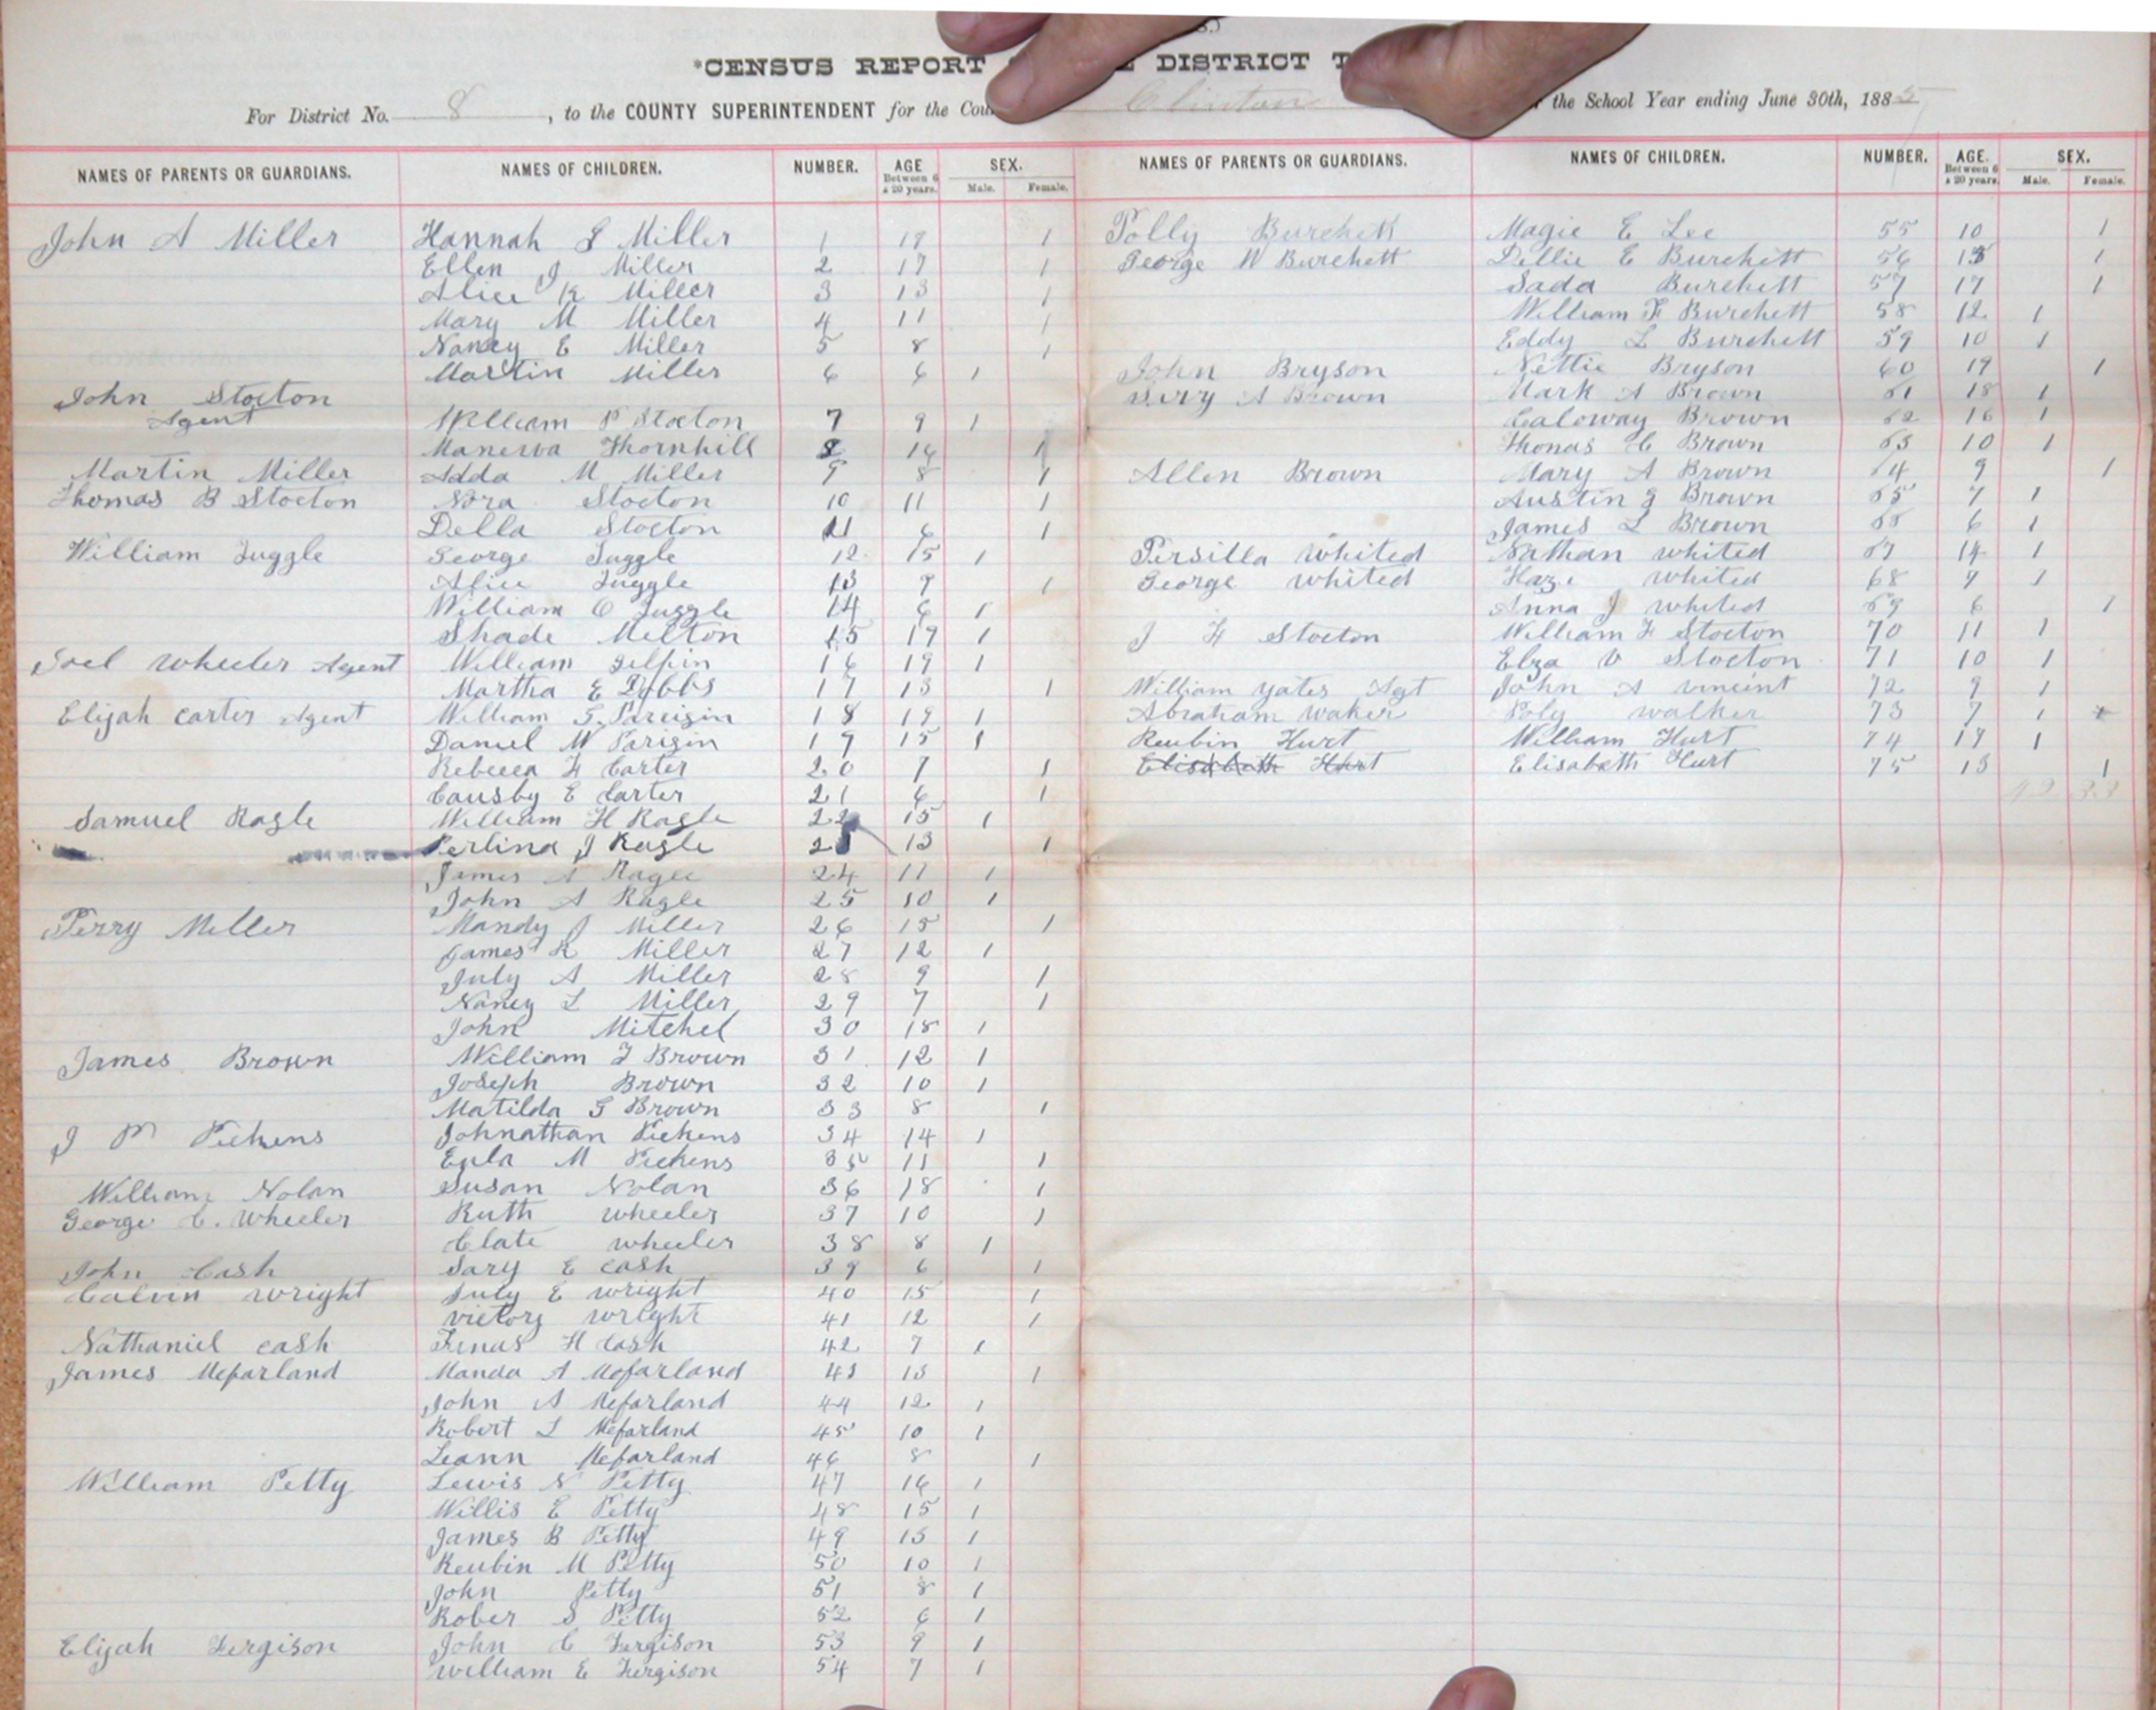 *CENSUS REPORT DISTRICT
For District No. 8, to the COUNTY SUPERINTENDENT for the Clinton the School Year ending June 30th, 1885
NAMES OF PARENTS OR GUARDIANS. NAMES OF CHILDREN. NUMBER. AGE Between 6 & 20 years. SEX. Male. Female.
John A Miller Hannah S Miller 1 19 1
Ellen J Miller 2 17 1
Alice K Miller 3 13 1
Mary M Miller 4 11 1
Nancy E Miller 5 8 1
Martin Miller 6 6 1
John Stocton
Agent William P Stocton 7 9 1
Manerva Thornhill 8 16 1
Martin Miller Adda M Miller 9 8 1
Thomas B Stocton Nora Stocton 10 11 1
Della Stocton 11 6 1
William Tuggle George Tuggle 12 15 1
Alice Tuggle 13 9 1
William C Tuggle 14 6 1
Shade Melton 15 17 1
Joel Wheeler Agent William Gilpin 16 19 1
Martha E Dobbs 17 13 1
Elijah Carter Agent William G. Pareigin 18 19 1
Daniel W Parigin 19 15 1
Rebecca F Carter 20 7 1
Causby E Carter 21 6 1
Samuel Ragle William H Ragle 22 15 1
Perlina J Ragle 23 13 1
James A Ragle 24 11 1
John A Ragle 25 10 1
Perry Miller Mandy J Miller 26 15 1
James K Miller 27 12 1
July A Miller 28 9 1
Nancy L Miller 29 7 1
John Mitchel 30 18 1
James Brown William T Brown 31 12 1
Joseph Brown 32 10 1
Matilda G Brown 33 8 1
J M Pickens Johnathan Pickens 34 14 1
Eula M Pickens 35 11 1
William Nolan Susan Nolan 36 18 1
George C. Wheeler Ruth wheeler 37 10 1
Clate wheeler 38 8 1
John Cash Sary E cash 39 6 1
Calvin wright July E wright 40 15 1
victory wright 41 12 1
Nathaniel cash H Cash 42 7 1
James Mcfarland Manda A Mcfarland 43 13 1
John A Mcfarland 44 12 1
Robert L Mcfarland 45 10 1
Leann Mcfarland 46 8 1
William Petty Lewis N Petty 47 16 1
Willis E Petty 48 15 1
James B Petty 49 13 1
Reubin M Petty 50 10 1
John Petty 51 8 1
Rober S Petty 52 6 1
Elijah Fergison John C Fergison 53 9 1
William E Fergison 54 7 1
NAMES OF PARENTS OR GUARDIANS. NAMES OF CHILDREN. NUMBER. AGE. Between 6 & 20 years. SEX. Male. Female.
Polly Burchett Magie E Lee 55 10 1
George W Burchett Dellie E Burchett 56 1
Sada Burchett 57 17 1
William F Burchett 58 12 1
Eddy L Burchett 59 10 1
John Bryson Nettie Bryson 60 19 1
A Brown Mark A Brown 61 18 1
Caloway Brown 62 16 1
Thomas C Brown 63 10 1
Allen Brown Mary A Brown 64 9 1
Austin G Brown 65 7 1
James L Brown 66 6 1
Persilla whited Nathan whited 67 14 1
George whited whited 68 9 1
Anna J whited 69 6 1
J F Stocton William F Stocton 70 11 1
Elza V Stocton 71 10 1
William yates Agt John A vincint 72 9 1
Abraham waker Poly walker 73 7 1
Reubin Hurt William Hurt 74 17 1
Elisabeth Hurt Elisabeth Hurt 75 13 1
42 33